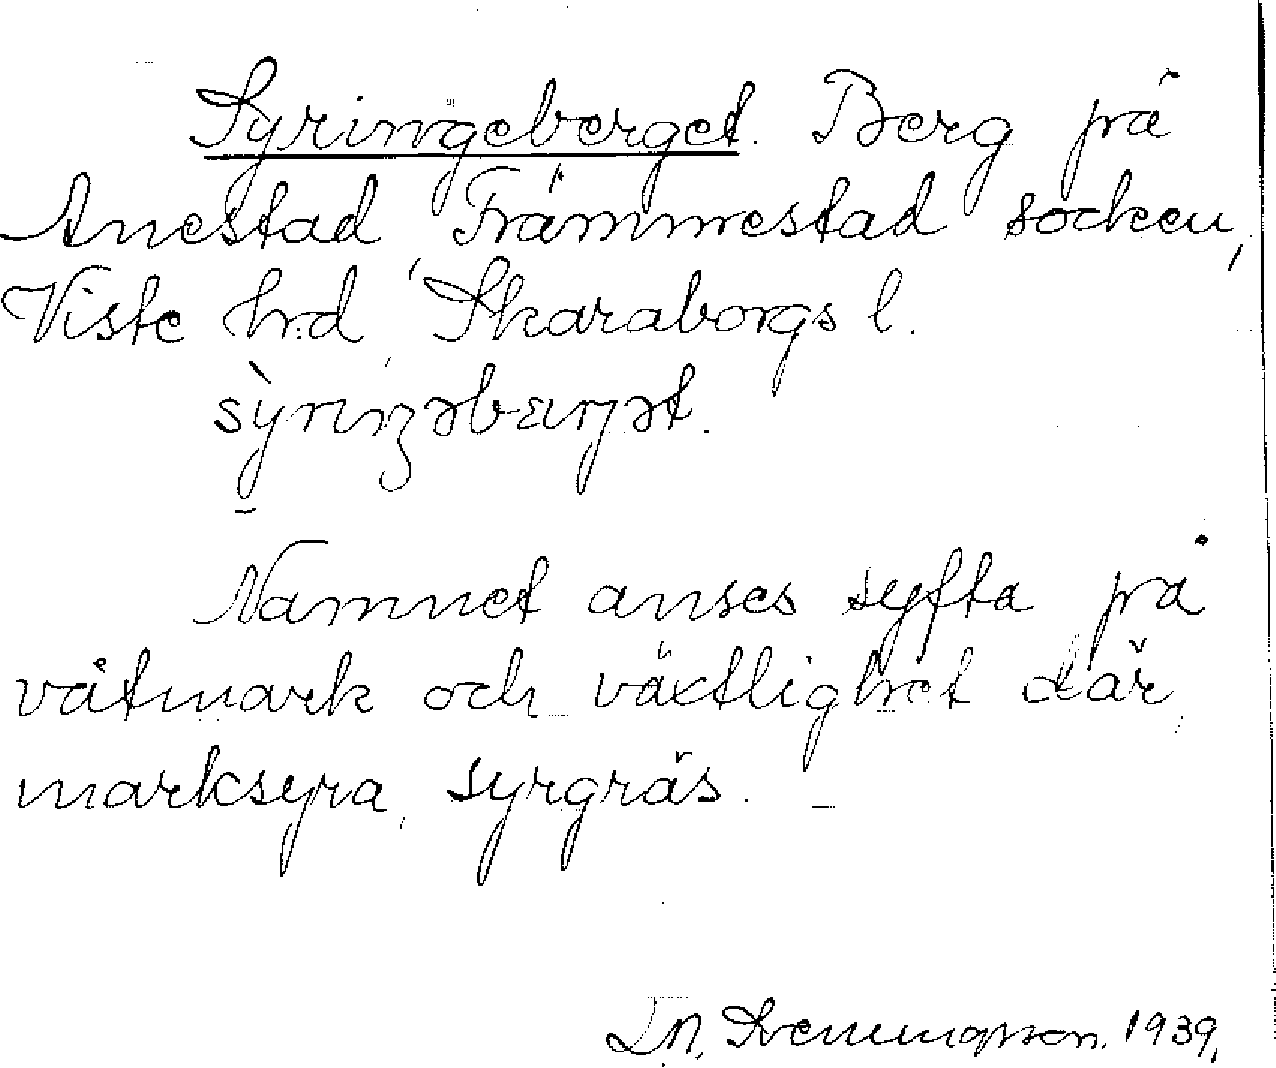 Syringeberget. Berg på
Anestad, Främmestad socken,
Viste hrd, Skaraborgs l.
sỳrıŋəbærjət.
Namnet anses syfta på
våtmark och växtlighet där,
marksyra, syrgräs. –
D.N. Svenningsson. 1939.